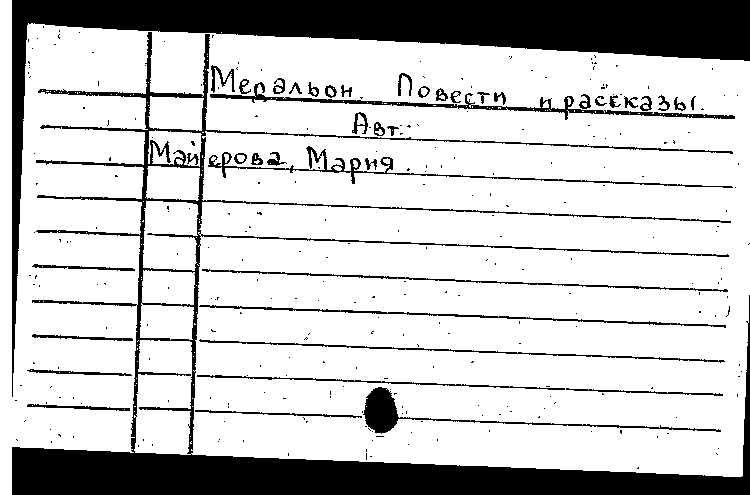 Медальон. Повести и рассказы.
Авт.:
Майерова, Мария.